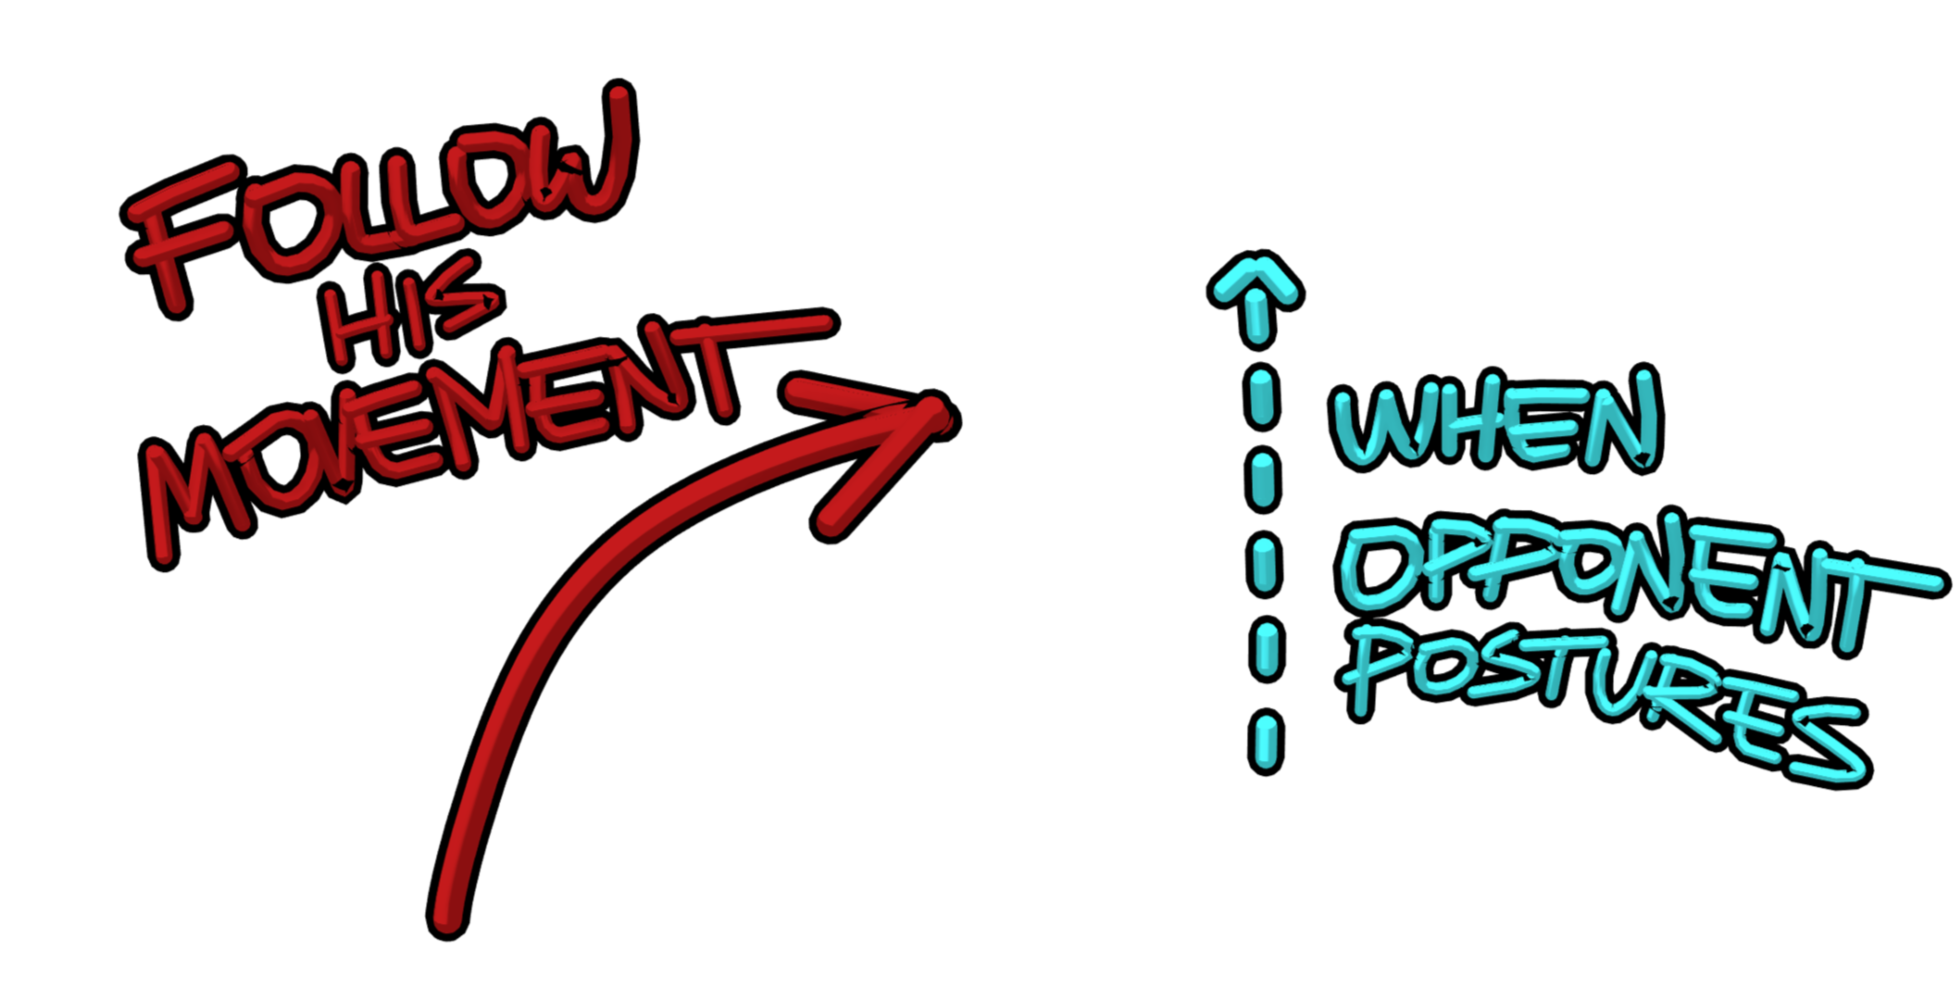 FOLLOW
HIS
MOVEMENT
WHEN
OPPONENT
POSTURES